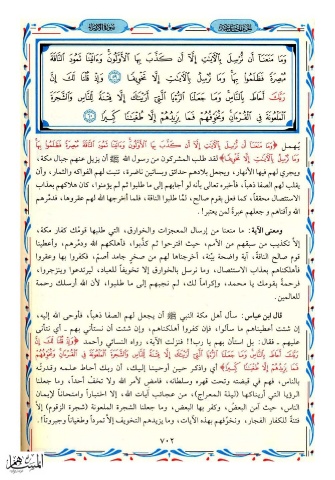 وَمَا مَنَعَنَا أَن نُّرْسِلَ بِالْآيَاتِ إِلَّا أَن كَذَّبَ بِهَا الْأَوَّلُونَ وَءَاتَيْنَا ثَمُودَ النَّاقَةَ
مُبْصِرَةً فَظَلَمُوا بِهَا وَمَا نُرْسِلُ بِالْآيَاتِ إِلَّا تَخْوِيفًا ٥٩ وَإِذْ قُلْنَا لَكَ إِنَّ
رَبَّكَ أَحَاطَ بِالنَّاسِ وَمَا جَعَلْنَا الرُّءْيَا الَّتِي أَرَيْنَاكَ إِلَّا فِتْنَةً لِّلنَّاسِ وَالشَّجَرَةَ
الْمَلْعُونَةَ فِي الْقُرْءَانِ وَنُخَوِّفُهُمْ فَمَا يَزِيدُهُمْ إِلَّا طُغْيَانًا كَبِيرًا ٦٠
﴿وَمَا مَنَعَنَا أَن نُّرْسِلَ بِالْآيَاتِ إِلَّا أَن كَذَّبَ بِهَا الْأَوَّلُونَ وَءَاتَيْنَا ثَمُودَ النَّاقَةَ مُبْصِرَةً فَظَلَمُوا بِهَا
وَمَا نُرْسِلُ بِالْآيَاتِ إِلَّا تَخْوِيفًا﴾ لقد طلب المشركون من رسول الله ﷺ أن يزيل عنهم جبال مكة،
ويجري لهم فيها الأنهار، ويجعل بلادهم حدائق وبساتين ناضرة، تنبت لهم الفواكه والثمار، وأن
يقلب لهم الصفا ذهباً، فأخبره تعالى بأنه لو أجابهم إلى ما طلبوا ثم لم يؤمنوا، كان هلاكهم بعذاب
الاستئصال محققاً، كما فعل بقوم صالح، لمّا طلبوا الناقة، فلما أخرجها الله لهم عقروها، فدمّرهم
الله وأفناهم وجعلهم عبرةً لمن يعتبر!.
ومعنى الآية: ما منعنا من إرسال المعجزات والخوارق، التي طلبها قومك كفار مكة،
إلا تكذيب من سبقهم من الأمم، حيث اقترحوا ثم كذّبوا، فأهلكهم الله ودمّرهم، وأعطينا
قوم صالح الناقة، آية واضحة بيّنة، أخرجناها لهم من صخر جامد أصمّ، فكفروا بها وعقروا
فأهلكناهم بعذاب الاستئصال، وما نرسل بالخوارق إلا تخويفاً للعباد، ليرتدعوا وينزجروا،
فرحمةً بقومك يا محمد، وإكراماً لك، لم نجبهم إلى ما طلبوا، لأن الله أرسلك رحمة
للعالمين.
قال ابن عباس: سأل أهل مكة النبي ﷺ أن يجعل لهم الصفا ذهباً، فأوحى الله إليه،
إن شئت أعطيناهم ما سألوا، فإن كفروا أهلكناهم، وإن شئت أن نستأني بهم ـ أي نتأنى
عليهم ـ فقال: بل استأن بهم يا رب!! فنزلت الآية، رواه النسائي وأحمد ﴿وَإِذْ قُلْنَا لَكَ إِنَّ
رَبَّكَ أَحَاطَ بِالنَّاسِ وَمَا جَعَلْنَا الرُّءْيَا الَّتِي أَرَيْنَاكَ إِلَّا فِتْنَةً لِّلنَّاسِ وَالشَّجَرَةَ الْمَلْعُونَةَ فِي الْقُرْءَانِ وَنُخَوِّفُهُمْ
فَمَا يَزِيدُهُمْ إِلَّا طُغْيَانًا كَبِيرًا﴾ أي واذكر حين أوحينا إليك، أن ربك أحاط علمه وقدرته
بالناس، فهم في قبضته وتحت قهره وسلطانه، فامض لأمر الله ولا تخف أحداً، وما جعلنا
الرؤيا التي أريناكها (ليلة المعراج)، من عجائب آيات الله، إلا اختباراً وامتحاناً لإيمان
الناس، حيث آمن البعض، وكفر بها البعض، وما جعلنا الشجرة الملعونة (شجرة الزقوم) إلاّ
فتنةً للكفار الفجار، ونخوّفهم بهذه الآيات، وما يزيدهم التخويف إلاّ تمرداً وطغياناً وجبروتاً!.
٧٠٢